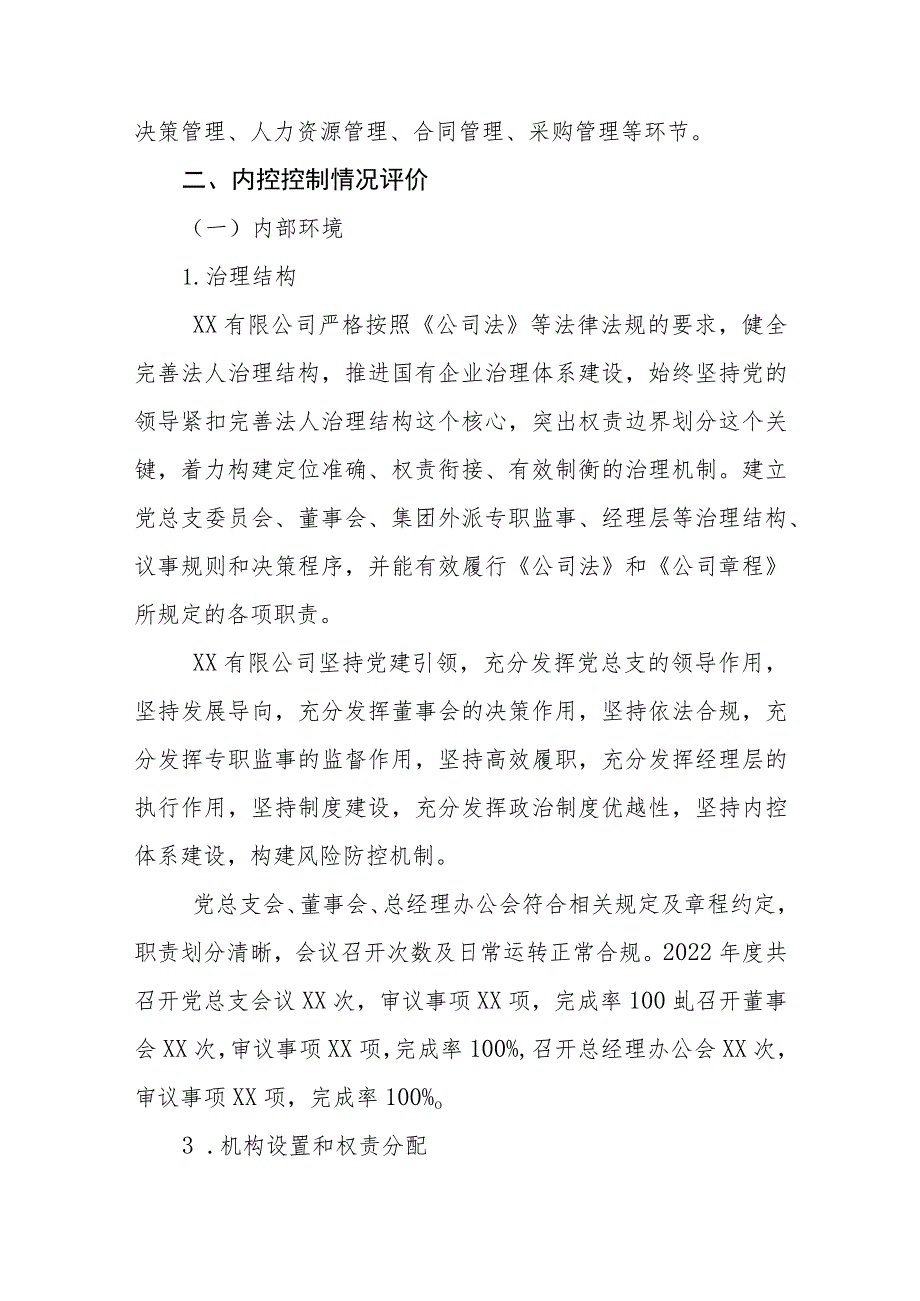 决策管理、人力资源管理、合同管理、采购管理等环节。
二、内控控制情况评价
（一）内部环境
1.治理结构
XX有限公司严格按照《公司法》等法律法规的要求，健全
完善法人治理结构，推进国有企业治理体系建设，始终坚持党的
领导紧扣完善法人治理结构这个核心，突出权责边界划分这个关
键，着力构建定位准确、权责衔接、有效制衡的治理机制。建立
党总支委员会、董事会、集团外派专职监事、经理层等治理结构、
议事规则和决策程序，并能有效履行《公司法》和《公司章程》
所规定的各项职责。
XX有限公司坚持党建引领，充分发挥党总支的领导作用，
坚持发展导向，充分发挥董事会的决策作用，坚持依法合规，充
分发挥专职监事的监督作用，坚持高效履职，充分发挥经理层的
执行作用，坚持制度建设，充分发挥政治制度优越性，坚持内控
体系建设，构建风险防控机制。
党总支会、董事会、总经理办公会符合相关规定及章程约定，
职责划分清晰，会议召开次数及日常运转正常合规。2022年度共
召开党总支会议XX次，审议事项XX项，完成率100虬召开董事
会XX次,审议事项XX项,完成率100%,召开总经理办公会XX次，
审议事项XX项，完成率100%。
3 .机构设置和权责分配